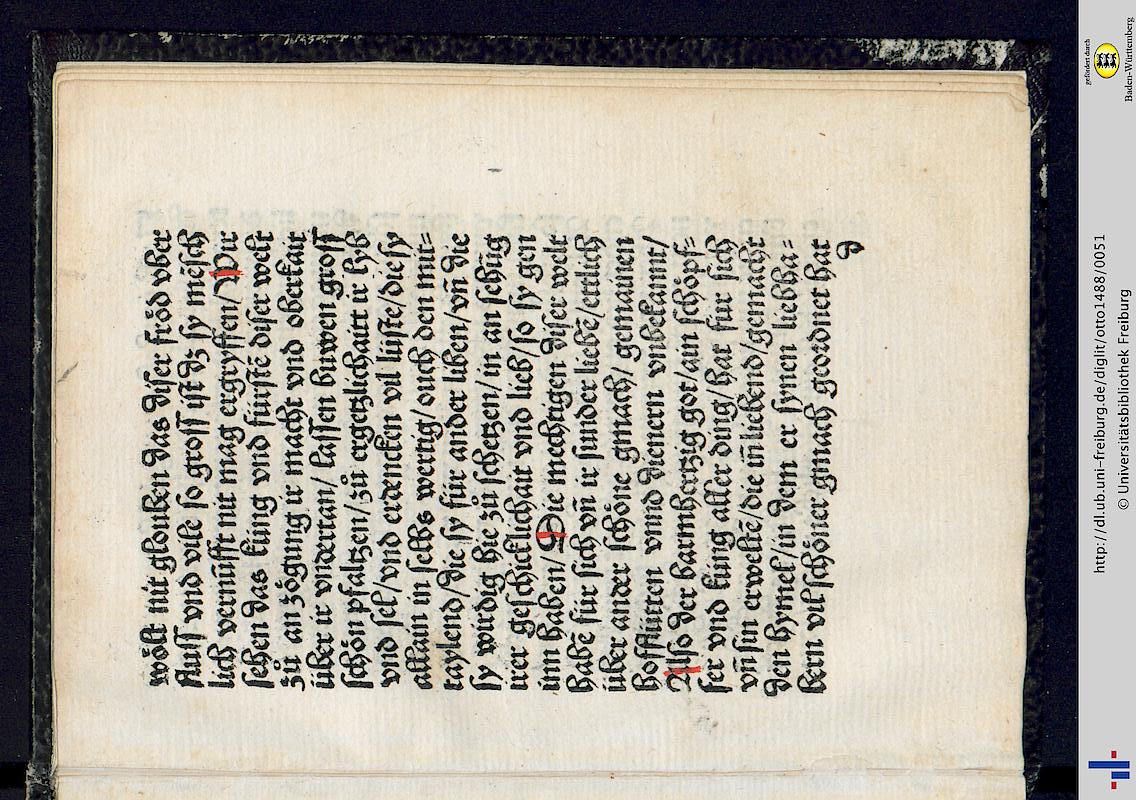 wölt nit glouben das diser fröd vber
fluss vnd vile so gross ist dz sy mēsch
lich vernufft nit mag ergryffen/ Wir
sehen das küng vnd fürstē diser welt
zů an zögung ir macht vnd oberkait
über ir vndertan/ lassen buwen gross
schön pfaltzen/ zů ergetzlichaitt ir lyb
vnd sel/ vnd erdencken vil lüste/ die sy
allain in selbs wertig/ ouch den mit=
taylend/ die sy für ander liben/ vn̄ die
sy wirdig hie zů schetzen/ in an sehūg
irer geschicklichait vnd lieb/ so sy gen
inn haben/ Die mechtigen diser welt
habē für sich vn̄ ir sunder liebē/ ettlich
über ander schöne gmach/ gemainen
hofflütten vnnd dienern vnbekannt/
Also der barmhertzig got/ ain schöpf=
fer vnd küng aller ding/ hat für sich
vn̄ sin erweltē/ die in̄ liebend/ gemacht
den hymel/ in dem er synen liebha=
bern vil schöner gmach geordnet hat
d
gefördert durch
Baden-Württemberg
http://dl.ub.uni-freiburg.de/diglit/otto1488/0051
© Universitätsbibliothek Freiburg